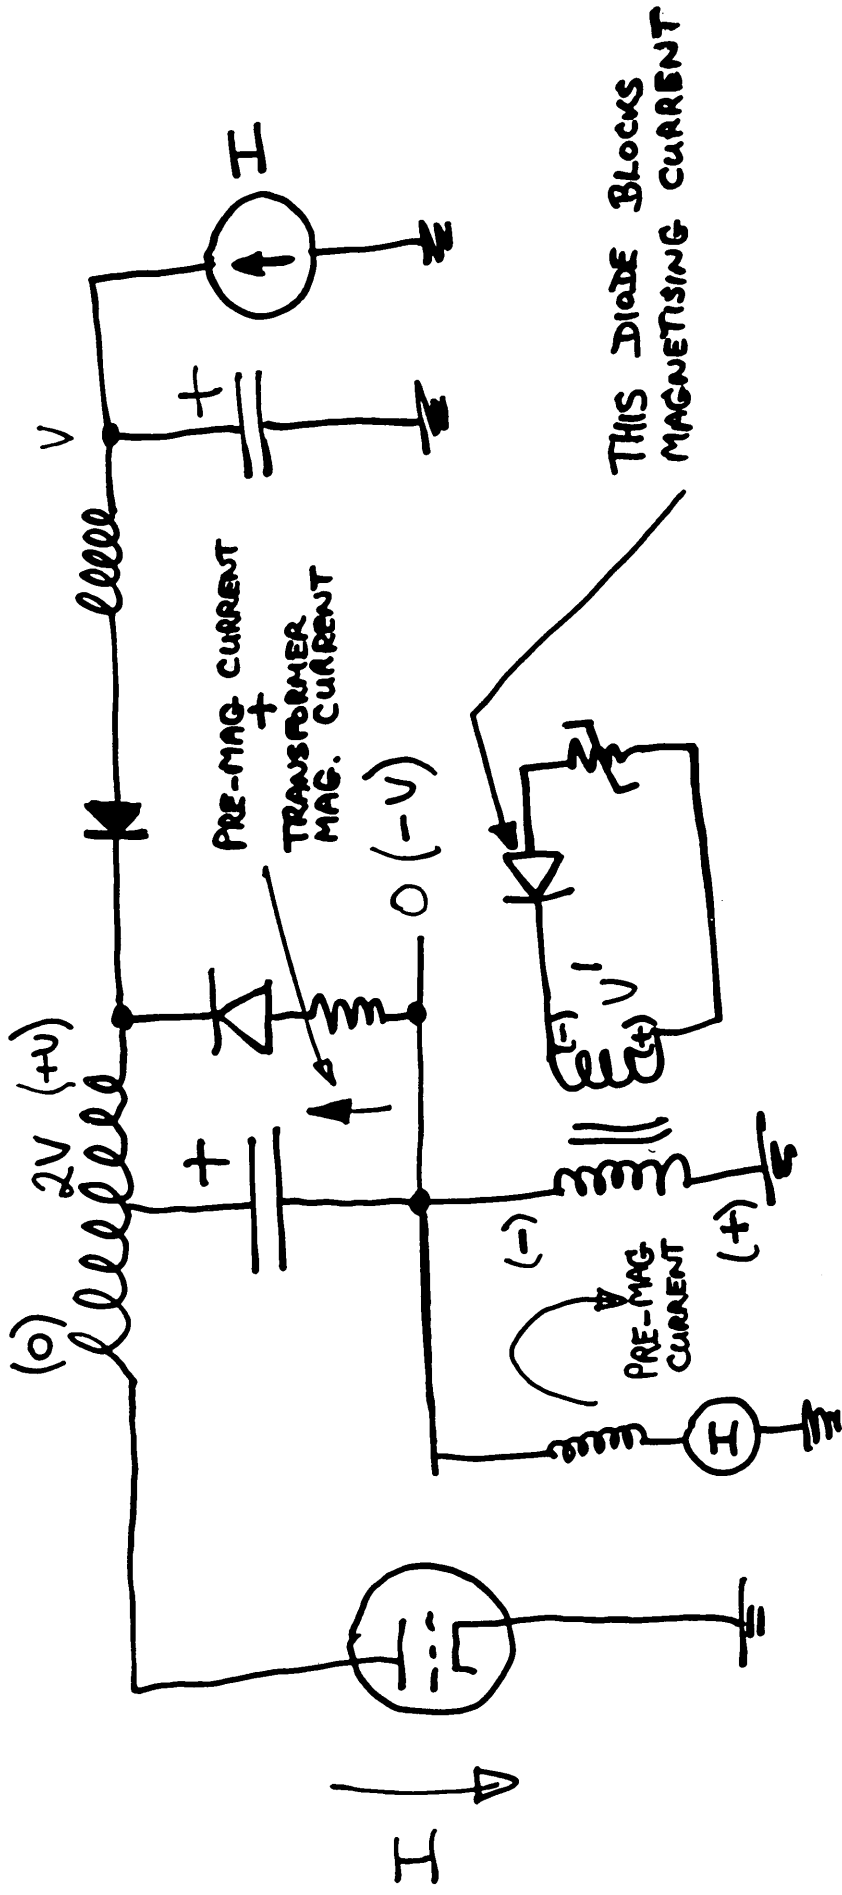 (0)
2V (+V)
V
+
+
I
PRE-MAG CURRENT
+
TRANSFORMER
MAG. CURRENT
I
0 (-V)
(-)
(-)
V'
(+)
THIS DIODE BLOCKS
MAGNETISING CURRENT
PRE-MAG
CURRENT
(+)
I